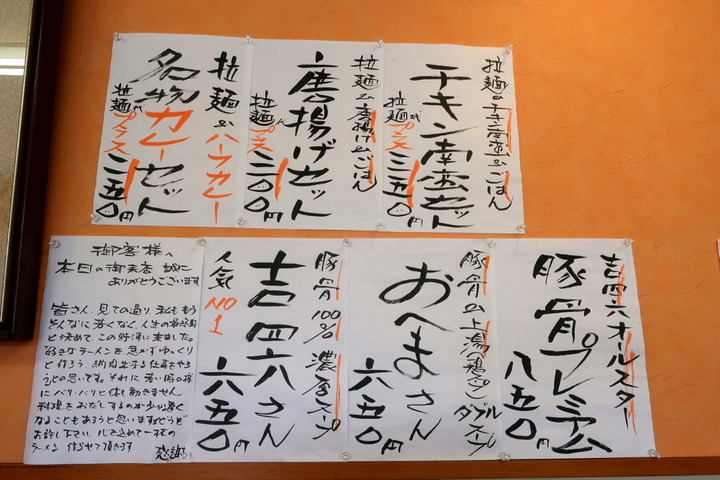 拉麺&チキン南蛮&ごはん
チキン南蛮セット
拉麺代プラス三五〇円
拉麺&唐揚げ&ごはん
唐揚げセット
拉麺代プラス三〇〇円
拉麺&ハーフカレー
名物カレーセット
拉麺代プラス二五〇円
吉四六オールスター
豚骨プレミアム
八五〇円
豚骨&上湯(鶏スープ)ダブルスープ
おへまさん
六五〇円
豚骨100%濃厚スープ
吉四六さん
六五〇円
人気NO1
御客様へ
本日の御来店 誠に
ありがとうございます
皆さん、見ての通り、私ももう
そんなに若くなく、人生の最終章
と決めて、この野津に来ました。
好きなラーメンを急がずゆっくり
と作ろう 納得出来る仕事をやろ
うとの思いです。それに若い時の様
にバリバリと体も動きません
料理をおだしするのが少々遅く
なることもあろうと思いますがどうぞ
お許し下さい 心を込めて一杯の
ラーメン 作らせて頂きます
感謝